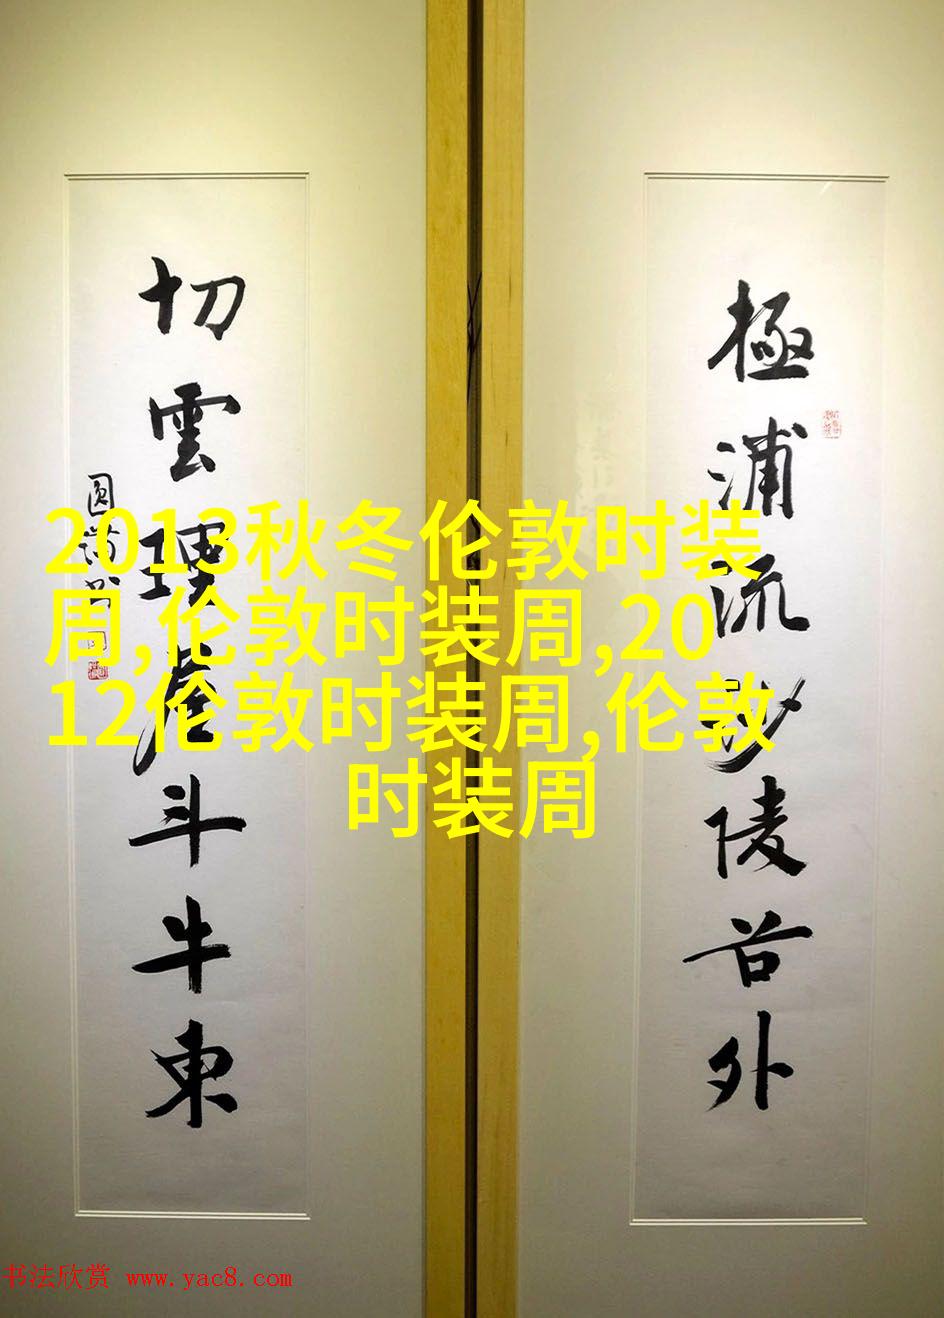 2013秋冬伦敦时装
周,伦敦时装周,20
12伦敦时装周,伦敦
时装周
極浦流沙陵谷外
切雲斗牛東
书法欣赏 www.yac8.com